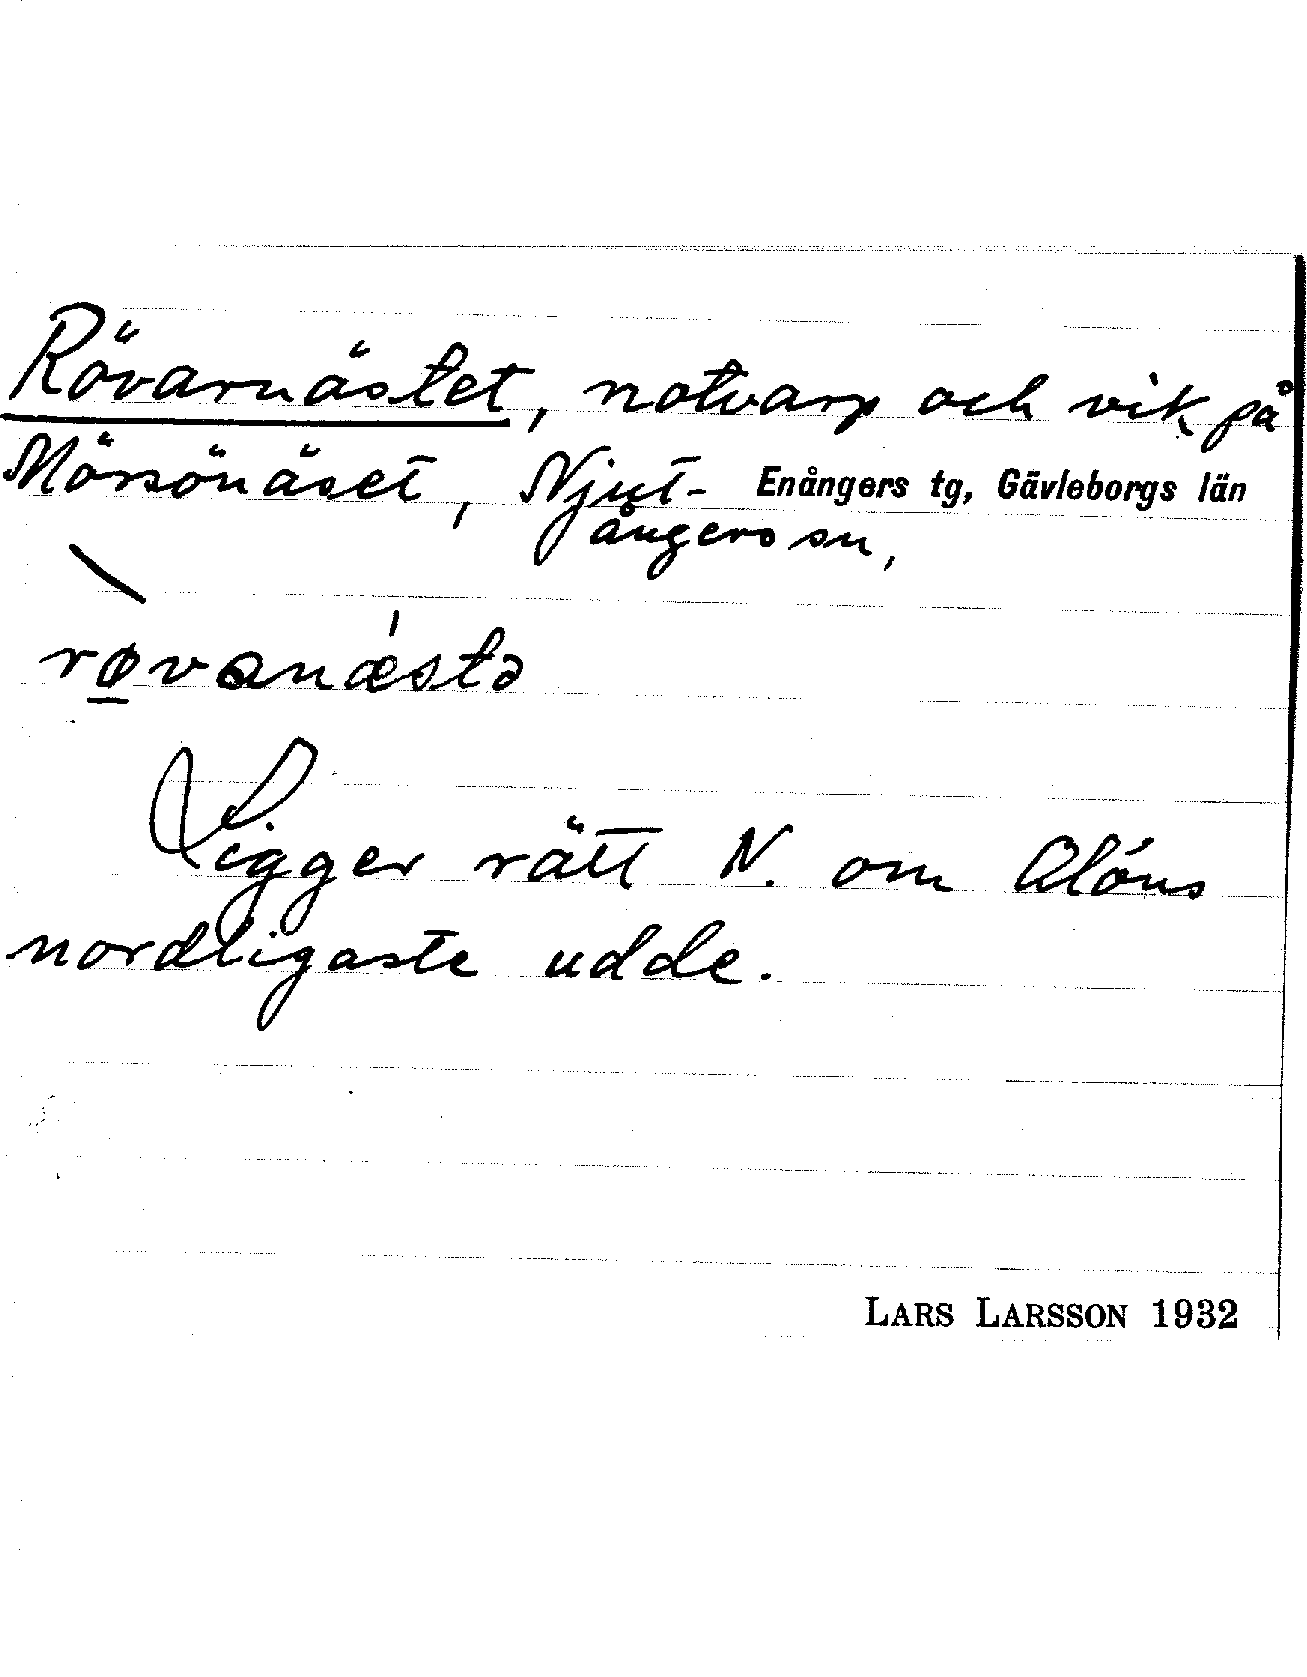 Rövarnästet, notvarp och vik på
Mörsönäset, Njut- Enångers tg, Gävleborgs län
ångers sn,
røvanæstə
Ligger rätt N. om Alöns
nordligaste udde.
LARS LARSSON 1932